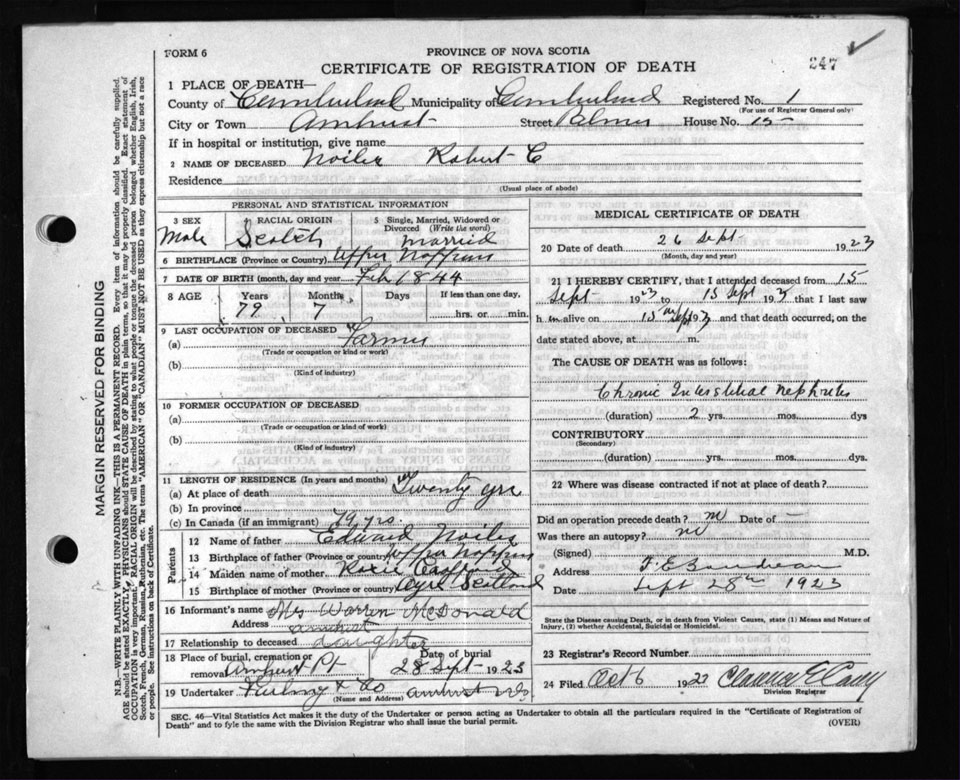 FORM 6
PROVINCE OF NOVA SCOTIA
CERTIFICATE OF REGISTRATION OF DEATH
247
1 PLACE OF DEATH—
County of Cumberland Municipality of Cumberland Registered No. 1
(For use of Registrar General only)
City or Town Amherst Street Palmer House No. 15
If in hospital or institution, give name
2 NAME OF DECEASED Noiles Robert C
Residence
(Usual place of abode)
PERSONAL AND STATISTICAL INFORMATION
3 SEX Male
4 RACIAL ORIGIN Scotch
5 Single, Married, Widowed or Divorced (Write the word) Married
6 BIRTHPLACE (Province or Country) Upper
7 DATE OF BIRTH (month, day and year) Feb 1844
8 AGE Years 79 Months 7 Days If less than one day, hrs. or min.
9 LAST OCCUPATION OF DECEASED
(a) Farmer
(Trade or occupation or kind or work)
(b)
(Kind of industry)
10 FORMER OCCUPATION OF DECEASED
(a)
(Trade or occupation or kind or work)
(b)
(Kind of industry)
11 LENGTH OF RESIDENCE (In years and months)
(a) At place of death Twenty yrs
(b) In province
(c) In Canada (if an immigrant) 79 yrs.
Parents
12 Name of father Edward Noiles
13 Birthplace of father (Province or country)
14 Maiden name of mother
15 Birthplace of mother (Province or country) Ayre Scotland
16 Informant's name Mrs Warren McDonald
Address Amherst
17 Relationship to deceased daughter
18 Place of burial, cremation or removal Amherst Pt Date of burial 28 Sept 1923
19 Undertaker & Co Amherst N.S.
(Name and Address)
MEDICAL CERTIFICATE OF DEATH
20 Date of death 26 Sept 1923
(Month, day and year)
21 I HEREBY CERTIFY, that I attended deceased from 15
Sept 1923 to 15 Sept 1923 that I last saw
h im alive on 15th Sept 1923 and that death occurred, on the
date stated above, at m.
The CAUSE OF DEATH was as follows:
Chronic Interstitial Nephritis
(duration) 2 yrs. mos. dys
CONTRIBUTORY
(Secondary)
(duration) yrs. mos. dys.
22 Where was disease contracted if not at place of death?
Did an operation precede death? no Date of —
Was there an autopsy? no
(Signed) M.D.
Address
Date Sept 28th 1923
State the Disease causing Death, or in death from Violent Causes, state (1) Means and Nature of Injury, (2) whether Accidental, Suicidal or Homicidal.
23 Registrar's Record Number
24 Filed Oct 6 1923
Division Registrar
SEC. 46—Vital Statistics Act makes it the duty of the Undertaker or person acting as Undertaker to obtain all the particulars required in the "Certificate of Registration of
Death" and to fyle the same with the Division Registrar who shall issue the burial permit.
(OVER)
MARGIN RESERVED FOR BINDING
N.B.—WRITE PLAINLY WITH UNFADING INK—THIS IS A PERMANENT RECORD. Every item of information should be carefully supplied.
AGE should be stated EXACTLY. PHYSICIANS should STATE CAUSE OF DEATH in plain terms, so that it may be properly classified. Exact statement of
OCCUPATION is very important. RACIAL ORIGIN will be described by stating to what people or tongue the deceased person belonged whether English, Irish,
Scotch, French, German, Russian, Ruthenian, etc. The terms "AMERICAN" OR "CANADIAN" MUST NOT BE USED as they express citizenship but not a race
or people. See instructions on back of Certificate.